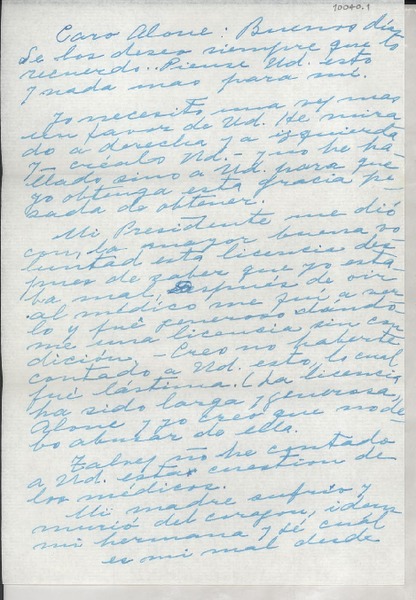 10040.1
Caro Alone: Buenos días
Se los deseo siempre que lo
recuerdo. Piense Ud. esto
y nada mas para mí.
Yo necesito una vez mas
un favor de Ud. He mira
do a derecha y a izquierda
y – créalo Ud. – yo no he ha
llado sino a Ud. para que
yo obtenga esta gracia pe
sada de obtener.
Mi Presidente me dió
con la mayor buena vo
luntad esta licencia des
pues de saber que yo esta
ba mal; después de oir
al médico me fuí a ver
lo y fué generoso dando
me una licencia sin con
dición. – Creo no haberte
contado a Ud. esto, lo cual
fué lástima. (La licencia
ha sido larga y generosa,
Alone y yo creo que no de
bo abusar de ella.
Talvez no he contado
a Ud. esta cuestion de
los médicos.
Mi madre sufrió y
murió del corazon, idem
mi hermana y sé cual
es mi mal desde